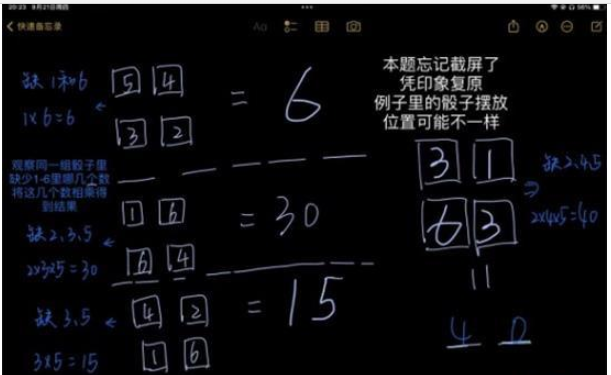 20:23 9月21日周四
98%
快速备忘录
Aa
本题忘记截屏了
凭印象复原
例子里的骰子摆放
位置可能不一样
缺1和6
1×6=6
5 4
3 2
= 6
观察同一组骰子里
缺少1-6里哪几个数
将这几个数相乘得
到结果
缺2,3,5
2×3×5=30
1 6
6 4
= 30
缺3,5
3×5=15
4 2
1 6
= 15
3 1
6 3
缺2,4,5
2×4×5=40
=
4 0